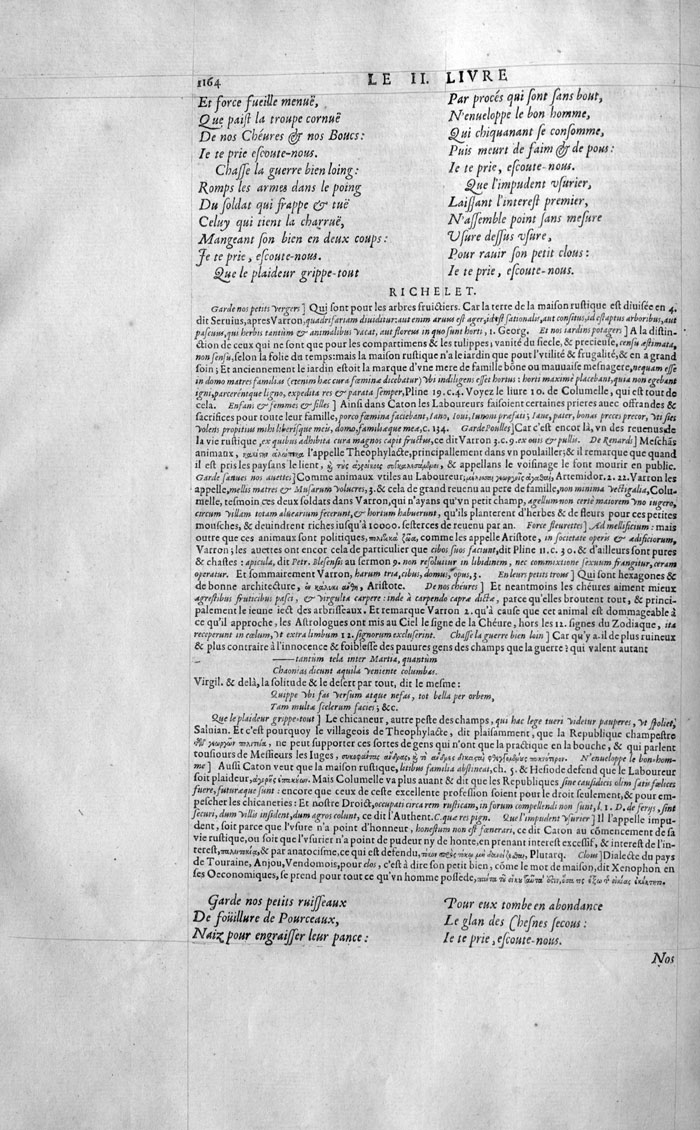 1164
LE II. LIVRE
Et force fueille menuë,
Que paist la troupe cornuë
De nos Chéures & nos Boucs:
Ie te prie escoute-nous.
Chasse la guerre bien loing:
Romps les armes dans le poing
Du soldat qui frappe & tuë
Celuy qui tient la charruë,
Mangeant son bien en deux coups:
Je te prie, escoute-nous.
Que le plaideur grippe-tout
Par procés qui sont sans bout,
N'enueloppe le bon homme,
Qui chiquanant se consomme,
Puis meurt de faim & de pous:
Ie te prie, escoute-nous.
Que l'impudent vsurier,
Laissant l'interest premier,
N'assemble point sans mesure
Vsure dessus vsure,
Pour rauir son petit clous:
Ie te prie, escoute-nous.
RICHELET.
Garde nos petits vergers] Qui sont pour les arbres fruictiers. Car la terre de la maison rustique est diuisée en 4.
dit Seruius, apres Varron, quadrifariam diuiditur: aut enim aruus est ager, id est sationalis, aut consitus, id est aptus arboribus, aut
pascuus, qui herbis tantùm & animalibus vacat, aut floreus in quo sunt horti, 1. Georg. Et nos iardins potagers] A la distin-
ction de ceux qui ne sont que pour les compartimens & les tulippes; vanité du siecle, & precieuse, censu æstimata,
non sensu, selon la folie du temps: mais la maison rustique n'a le iardin que pout l'vtilité & frugalité, & en a grand
soin; Et anciennement le iardin estoit la marque d'vne mere de famille bõne ou mauuaise mesnagere, nequam esse
in domo matres familias (etenim hæc cura fœmina dicebatur) vbi indiligens esset hortus: horti maximè placebant, quia non egebant
igni, parcerentque ligno, expedita res & parata semper, Pline 19. c. 4. Voyez le liure 10. de Columelle, qui est tout de
cela. Enfans & femmes & filles] Ainsi dans Caton les Laboureurs faisoient certaines prieres auec offrandes &
sacrifices pour toute leur famille, porco fœmina faciebant, Iano, Ioui, Iunoni præfati; Iane, pater, bonas preces precor, vti sies
volens propitius mihi liberisque meis, domo, familiaque mea, c. 134. Garde Poulles] Car c'est encor là, vn des reuenus de
la vie rustique, ex quibus adhibita cura magnos capit fructus, ce dit Varron 3. c. 9. ex ouis & pullis. De Renards] Meschãs
animaux, l'appelle Theophylacte, principallement dans vn poulailler; & il remarque que quand
il est pris les paysans le lient, & appellans le voisinage le font mourir en public.
Garde sanues nos auettes] Comme animaux vtiles au Laboureur, Artemidor. 2. 22. Varron les
appelle, mellis matres & Musarum volucres, 3. & cela de grand reuenu au pere de famille, non minima vectigalia, Colu-
melle, tesmoin ces deux soldats dans Varron, qui n'ayans qu'vn petit champ, agellum non certè maiorem vno iugero,
circum villam totam aluearium fecerunt, & hortum habuerunt, qu'ils planterent d'herbes & de fleurs pour ces petites
mousches, & deuindrent riches iusqu'à 10000. sesterces de reuenu par an. Force fleurettes] Ad mellificium: mais
outre que ces animaux sont politiques, comme les appelle Aristote, in societate operis & ædificiorum,
Varron; les auettes ont encor cela de particulier que cibos suos faciunt, dit Pline 11. c. 30. & d'ailleurs sont pures
& chastes: apicula, dit Petr. Blesensis au sermon 9. non resoluitur in libidinem, nec commixtione sexuum frangitur, ceram
operatur. Et sommairement Varron, harum tria, cibus, domus, opus, 3. En leurs petits trous] Qui sont hexagones &
de bonne architecture, Aristote. De nos chéures] Et neantmoins les chéures aiment mieux
agrestibus fruticibus pasci, & virgulta carpere: inde à carpendo capra dicta, parce qu'elles broutent tout, & princi-
palement le ieune iect des arbrisseaux. Et remarque Varron 2. qu'à cause que cet animal est dommageable à
ce qu'il approche, les Astrologues ont mis au Ciel le signe de la Chéure, hors les 12. signes du Zodiaque, ita
receperunt in cœlum, vt extra limbum 12. signorum excluserint. Chasse la guerre bien loin] Car qu'y a-il de plus ruineux
& plus contraire à l'innocence & foiblesse des pauures gens des champs que la guerre? qui valent autant
——tantùm tela inter Martia, quantùm
Chaonias dicunt aquila veniente columbas.
Virgil. & delà, la solitude & le desert par tout, dit le mesme:
Quippe vbi fas versum atque nefas, tot bella per orbem,
Tam multæ scelerum facies; &c.
Que le plaideur grippe-tout] Le chicaneur, autre peste des champs, qui hac lege tueri videtur pauperes, vt spoliet,
Saluian. Et c'est pourquoy le villageois de Theophylacte, dit plaisamment, que la Republique champestre
ne peut supporter ces sortes de gens qui n'ont que la practique en la bouche, & qui parlent
tousiours de Messieurs les Iuges, N'enueloppe le bon-hom-
me] Aussi Caton veut que la maison rustique, litibus familia abstineat, ch. 5. & Hesiode defend que le Laboureur
soit plaideur, Mais Columelle va plus auant & dit que les Republiques sine causidicis olim satis fœlices
fuere, futuræque sunt: encore que ceux de ceste excellente profession soient pour le droit seulement, & pour em-
pescher les chicaneries: Et nostre Droict, occupati circa rem rusticam, in forum compellendi non sunt, l. 1. D. de ferys, sint
securi, dum villis insident, dum agros colunt, ce dit l'Authent. C. quæ res pign. Que l'impudent vsurier] Il l'appelle impu-
dent, soit parce que l'vsure n'a point d'honneur, honestum non est fœnerari, ce dit Caton au cõmencement de sa
vie rustique, ou soit que l'vsurier n'a point de pudeur ny de honte, en prenant interest excessif, & interest de l'in-
terest, & par anatocisme, ce qui est defendu, Plutarq. Clous] Dialecte du pays
de Touraine, Anjou, Vendomois, pour clos, c'est à dire son petit bien, cõme le mot de maison, dit Xenophon en
ses Oeconomiques, se prend pour tout ce qu'vn homme possede,
Garde nos petits ruisseaux
De foüillure de Pourceaux,
Naiz pour engraisser leur pance:
Pour eux tombe en abondance
Le glan des Chesnes secous:
Ie te prie, escoute-nous.
Nos